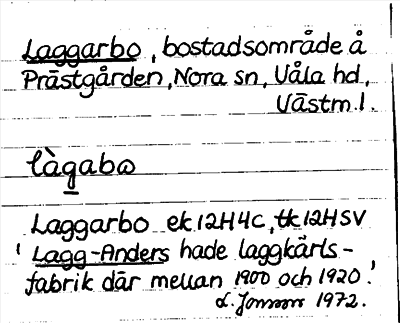 Laggarbo, bostadsområde å
Prästgården, Nora sn, Våla hd,
Västm.l.
làgabω
Laggarbo ek 12H4c, tk 12HSV
' Lagg-Anders hade laggkärls-
fabrik där mellan 1900 och 1920.'
Jonsson 1972.